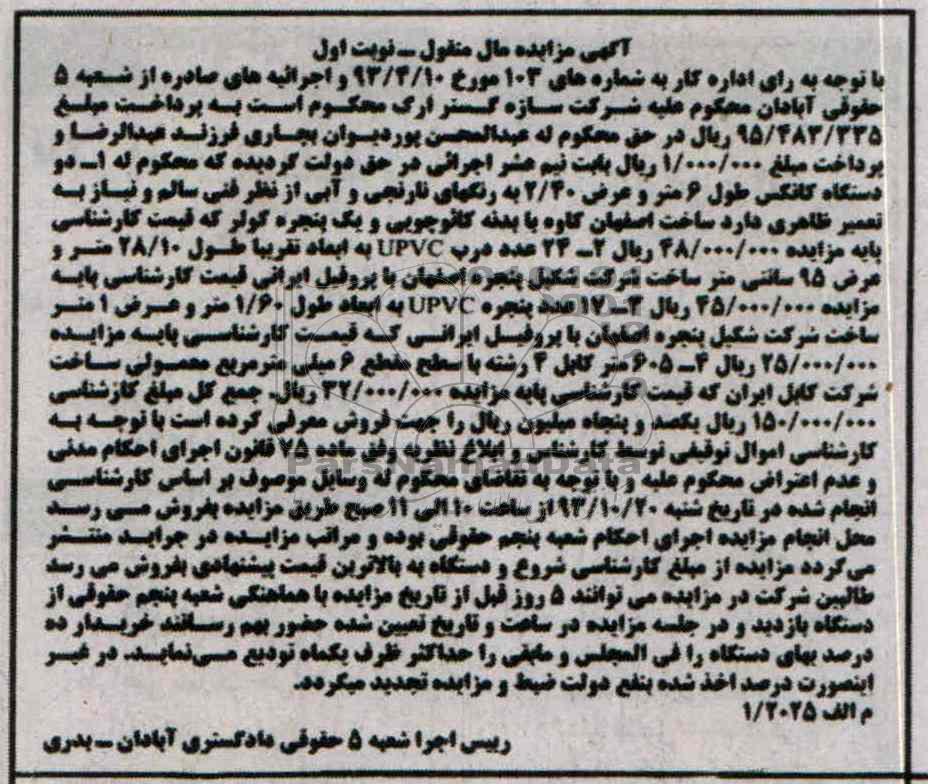 آگهی مزایده مال منقول ــ نوبت اول
با توجه به رای اداره کار به شماره های ۱۰۳ مورخ ۹۳/۴/۱۰ و اجرائیه های صادره از شعبه ۵
حقوقی آبادان محکوم علیه شرکت سازه گستر ارک محکوم است به پرداخت مبلغ
۹۵/۴۸۳/۳۳۵ ریال در حق محکوم له عبدالمحسن پوردیوان بجاری فرزند عبدالرضا و
پرداخت مبلغ ۱/۰۰۰/۰۰۰ ریال بابت نیم عشر اجرائی در حق دولت گردیده که محکوم له ۱ــ دو
دستگاه کانکس طول ۶ متر و عرض ۲/۴۰ به رنگهای نارنجی و آبی از نظر فنی سالم و نیاز به
تعمیر ظاهری دارد ساخت اصفهان کاوه با بدنه کافوچوبی و یک پنجره کولر که قیمت کارشناسی
پایه مزایده ۴۸/۰۰۰/۰۰۰ ریال ۲ــ ۲۴ عدد درب UPVC به ابعاد تقریبا طول ۲۸/۱۰ متر و
عرض ۹۵ سانتی متر ساخت شرکت شکیل پنجره اصفهان با پروفیل ایرانی قیمت کارشناسی پایه
مزایده ۴۵/۰۰۰/۰۰۰ ریال ۳ــ ۱۷ عدد پنجره UPVC به ابعاد طول ۱/۶۰ متر و عرض ۱ متر
ساخت شرکت شکیل پنجره اصفهان با پروفیل ایرانی که قیمت کارشناسی پایه مزایده
۲۵/۰۰۰/۰۰۰ ریال ۴ــ ۶۰۵ متر کابل ۴ رشته با سطح مقطع ۶ میلی مترمربع معمولی ساخت
شرکت کابل ایران که قیمت کارشناسی پایه مزایده ۳۲/۰۰۰/۰۰۰ ریال. جمع کل مبلغ کارشناسی
۱۵۰/۰۰۰/۰۰۰ ریال یکصد و پنجاه میلیون ریال را جهت فروش معرفی کرده است با توجه به
کارشناسی اموال توقیفی توسط کارشناس و ابلاغ نظریه وفق ماده ۷۵ قانون اجرای احکام مدنی
و عدم اعتراض محکوم علیه و با توجه به تقاضای محکوم له وسایل موصوف بر اساس کارشناسی
انجام شده در تاریخ شنبه ۹۳/۱۰/۲۰ از ساعت ۱۰ الی ۱۱ صبح طریق مزایده بفروش می رسد
محل انجام مزایده اجرای احکام شعبه پنجم حقوقی بوده و مراتب مزایده در جراید منتشر
می‌گردد مزایده از مبلغ کارشناسی شروع و دستگاه به بالاترین قیمت پیشنهادی بفروش می رسد
طالبین شرکت در مزایده می توانند ۵ روز قبل از تاریخ مزایده با هماهنگی شعبه پنجم حقوقی از
دستگاه بازدید و در جلسه مزایده در ساعت و تاریخ تعیین شده حضور بهم رسانند خریدار ده
درصد بهای دستگاه را فی المجلس و مابقی را حداکثر ظرف یکماه تودیع می‌نماید. در غیر
اینصورت درصد اخذ شده بنفع دولت ضبط و مزایده تجدید میگردد.
م الف ۱/۲۰۲۵
رییس اجرا شعبه ۵ حقوقی دادگستری آبادان ــ بدری
ParsNamadData